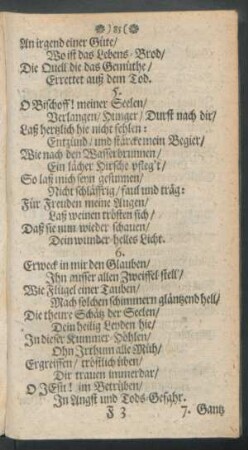 ) 85 (
An irgend einer Güte/
Wo ist das Lebens-Brod/
Die Quell die das Gemüthe/
Errettet auß dem Tod.
5.
O Bischoff! meiner Seelen/
Verlangen/ Hunger/ Durst nach dir/
Laß hertzlich hie nicht fehlen:
Entzünd/ und stärcke mein Begier/
Wie nach den Wasserbrunnen/
Ein lächer Hirsche pfleg't/
So laß mich seyn gesinnen/
Nicht schläffrig/ faul und träg:
Für Freuden meine Augen/
Laß weinen trösten sich/
Daß sie nun wieder schauen/
Dein wunder-helles Licht.
6.
Erweck in mir den Glauben/
Ihn ausser allen Zweiffel stell/
Wie Flügel einer Tauben/
Mach solchen schimmern gläntzend hell/
Die theure Schätz der Seelen/
Dein heilig Leyden hie/
In dieser Kummer-Höhlen/
Ohn Irthum alle Müh/
Ergreiffen/ tröstlich üben/
Dir trauen immerdar/
O JEsu! im Betrüben/
In Angst und Tods-Gefahr.
F 3 7. Gantz